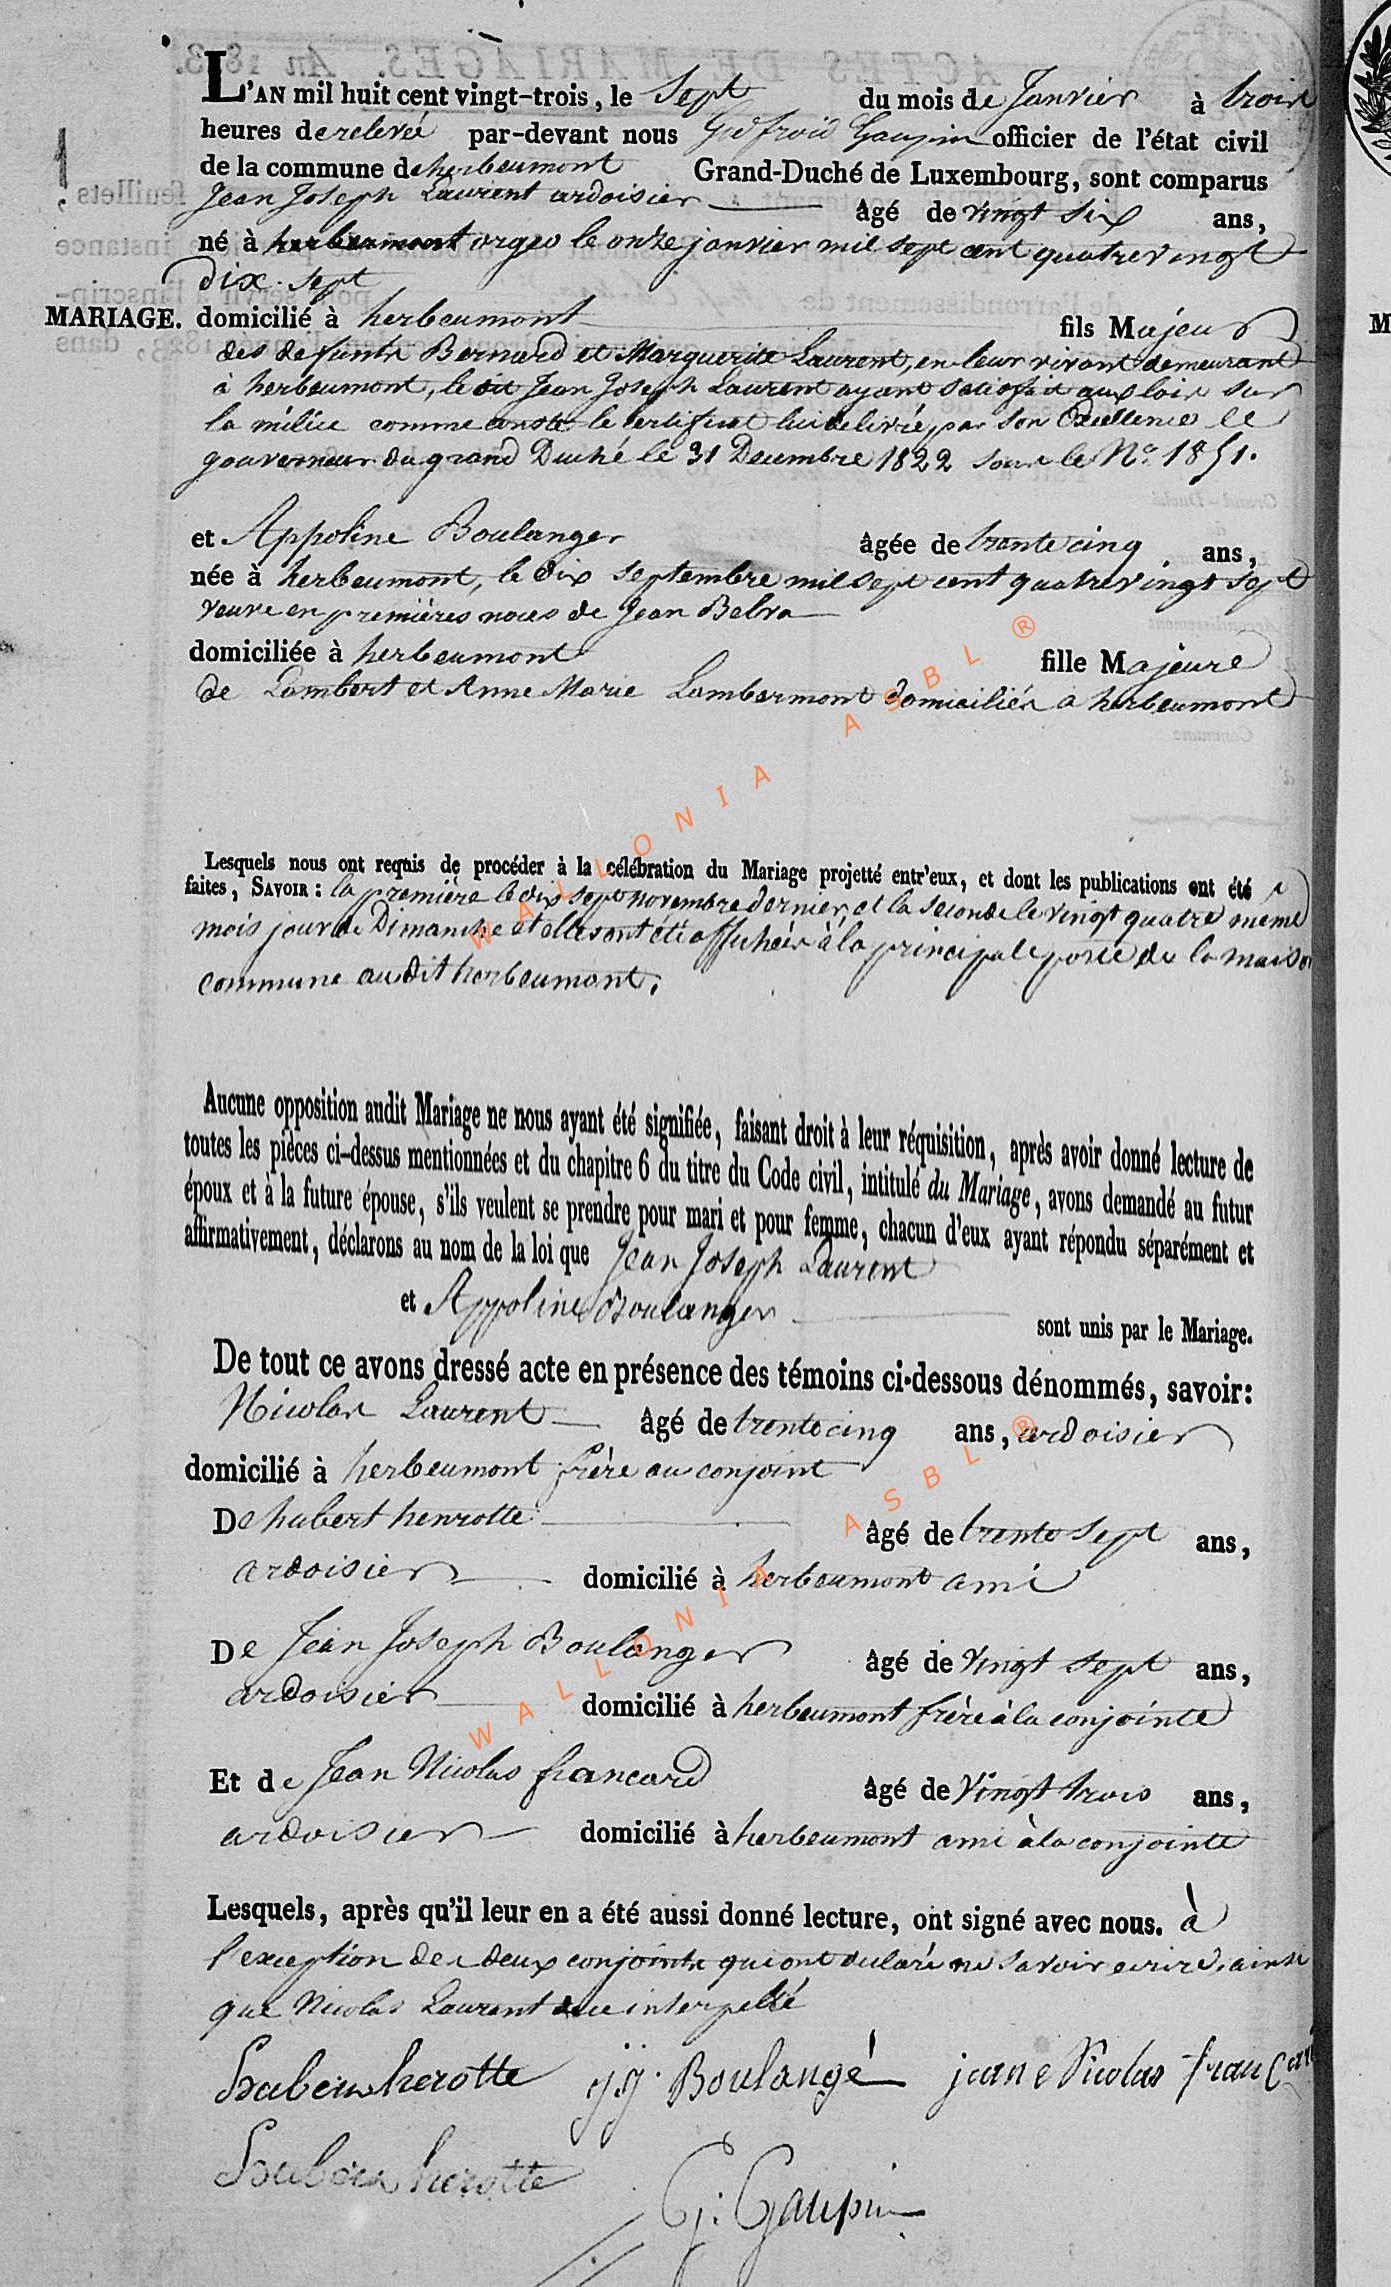 L'AN mil huit cent vingt-trois, le Sept du mois de Janvier à trois
heures de relevée par-devant nous Godfroid Gaupin officier de l'état civil
de la commune de herbeumont Grand-Duché de Luxembourg, sont comparus
Jean Joseph Laurent ardoisier âgé de vingt six ans,
né à herbeumont orgeo le onze janvier mil sept cent quatre vingt
dix-sept
MARIAGE. domicilié à herbeumont fils Majeur
des defunts Bernard et Marguerite Laurent, en leur vivant demeurant
à herbeumont, le dit Jean Joseph Laurent ayant satisfait aux lois sur
la milice comme conste le certificat lui delivré par son Excellence le
gouverneur du grand Duché le 31 Decembre 1822 sous le No. 1851.
et Appoline Boulanger âgée de trente cinq ans,
née à herbeumont, le dix septembre mil sept cent quatre vingt sept
veuve en premières noces de Jean Bebra
domiciliée à herbeumont fille Majeure
de Lambert et Anne Marie Lambermont domiciliés a herbeumont
Lesquels nous ont requis de procéder à la célébration du Mariage projetté entr'eux, et dont les publications ont été
faites, SAVOIR : la première le dix sept novembre dernier, et la seconde le vingt quatre même
mois jour de Dimanche et elles ont été affichées à la principale porte de la maison
commune au dit herbeumont.
Aucune opposition audit Mariage ne nous ayant été signifiée, faisant droit à leur réquisition, après avoir donné lecture de
toutes les pièces ci-dessus mentionnées et du chapitre 6 du titre du Code civil, intitulé du Mariage, avons demandé au futur
époux et à la future épouse, s'ils veulent se prendre pour mari et pour femme, chacun d'eux ayant répondu séparément et
affirmativement, déclarons au nom de la loi que Jean Joseph Laurent
et Appoline Boulanger
sont unis par le Mariage.
De tout ce avons dressé acte en présence des témoins ci-dessous dénommés, savoir:
Nicolas Laurent âgé de trente cinq ans, ardoisier
domicilié à herbeumont frère au conjoint
De hubert henrotte âgé de trente sept ans,
ardoisier domicilié à herbeumont ami
De Jean Joseph Boulanger âgé de vingt sept ans,
ardoisier domicilié à herbeumont frère à la conjointe
Et de Jean Nicolas francard âgé de Vingt trois ans,
ardoisier domicilié à herbeumont ami à la conjointe
Lesquels, après qu'il leur en a été aussi donné lecture, ont signé avec nous. à
l'exception des deux conjoints qui ont declaré ne savoir ecrire, ainsi
que Nicolas Laurent de ce interpellé
herotte jj. Boulangé jean Nicolas francard
herotte
G: Gaupin
WALLONIA ASBL ®
WALLONIA ASBL ®